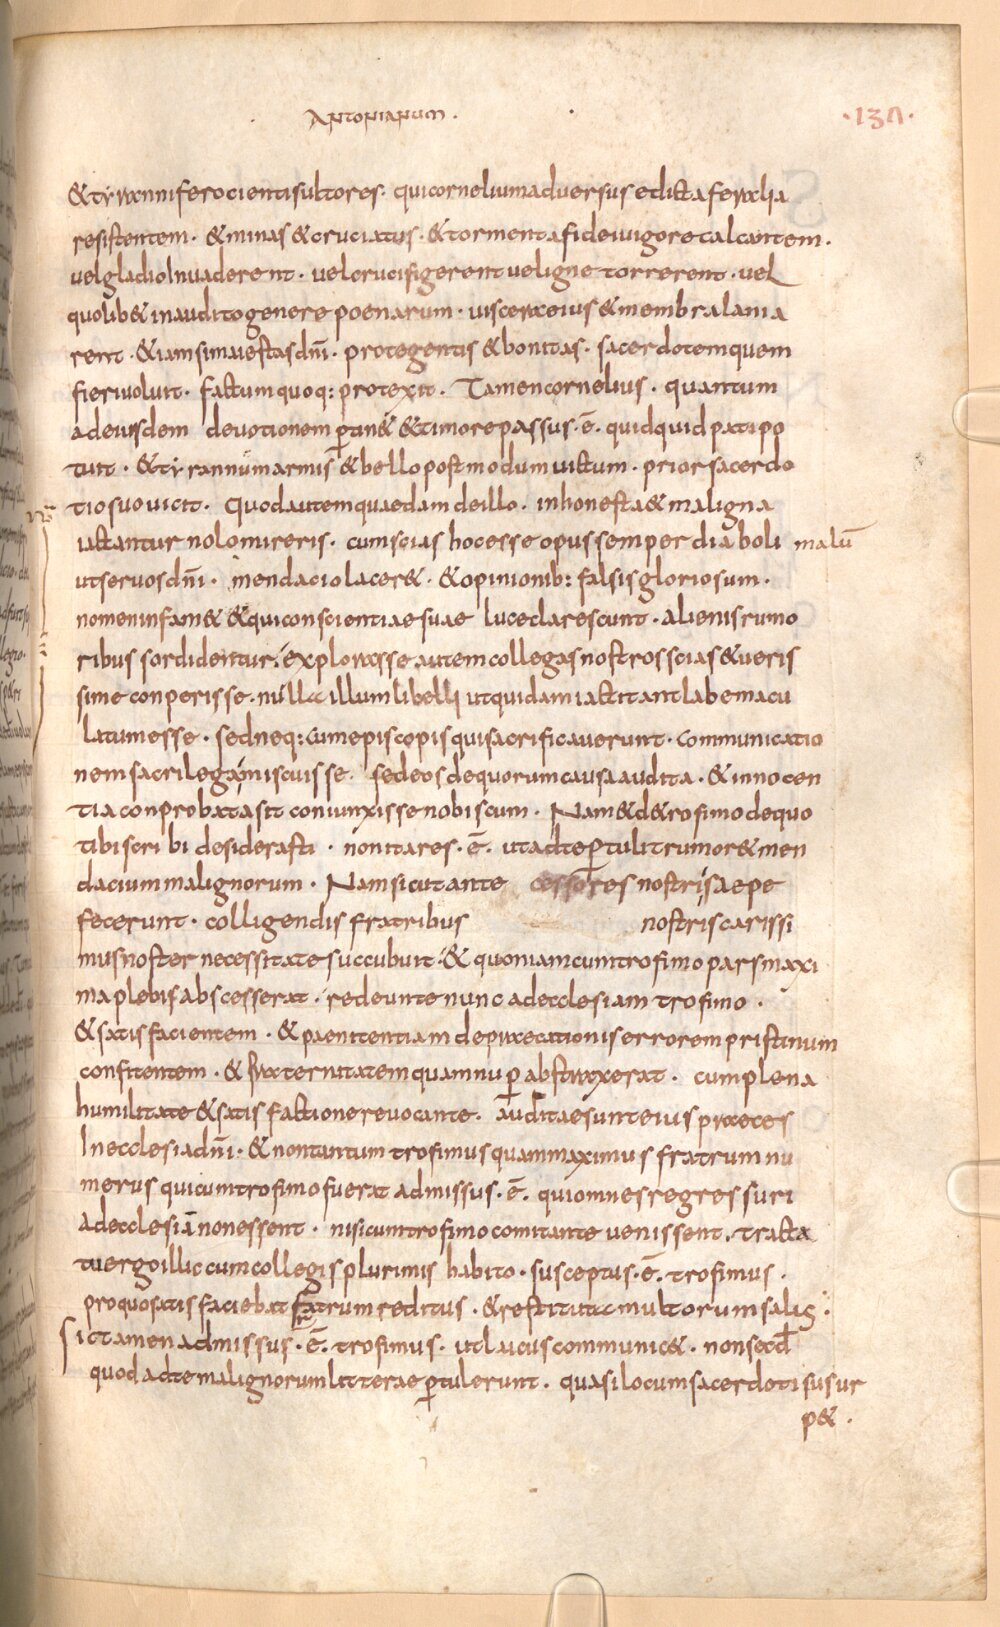 Artoriarum .
·130·
& tyranni ferocientis ultores · qui cornelium adversus edicta feralia
resistentem · & minas & cruciatus · & tormenta fidei uigore calcantem ·
uel gladio Inuaderent · uel crucifigerent uel igne torrerent · uel
quolib& inaudito genere poenarum · uiscera eius & membra lania
rent · & iamsi maiestas dnī · protegentis & bonitas · sacerdotem quem
fieri uoluit · factum quoq: protexit · Tamen cornelius · quantum
ad eiusdem deuotionem ptin& & timore passus · ē · quidquid pati po
tuit · & tyrannum armis & bello postmodum uictum · prior sacerdo
tio suo uicit · Quod autem quaedam de illo · inhonesta & maligna
iactantur nolo mireris · cum scias hoc esse opus semper diaboli malū
ut seruos dnī · mendacio lacer& · & opinionib: falsis gloriosum ·
nomen infam& & qui conscientiae suae luce clarescunt · alienis rumo
ribus sordidentur · explorasse autem collegas nostros scias & ueris
sime conperisse · nulla illum libelli ut quidam iactitant labe macu
latum esse · sed neq: cum episcopis qui sacrificauerunt · communicatio
nem sacrilegam miscuisse · sed eos de quorum causa audita · & innocen
tia conprobata sit coniunxisse nobiscum · Nam & de trofimo de quo
tibi scribi desiderasti · non ita res · ē · ut ad te ptulit rumor & men
dacium malignorum · Nam sicut ante cessores nostri saepe
fecerunt · colligendis fratribus nostris carissi
mus noster necessitate succubuit · & quoniam cum trofimo pars maxi
ma plebis abscesserat · redeunte nunc ad ecclesiam trofimo ·
& satisfacientem · & paenitentiam depraecationis errorem pristinum
confitentem · & fraternitatem quam nup abstraxerat · cum plena
humilitate & satisfactione reuocante · auditae sunt eius praeces
In ecclesia dnī · & non tantum trofimus quam maximus fratrum nu
merus qui cum trofimo fuerat admissus · ē · qui omnes regressuri
ad ecclesiā non essent · nisi cum trofimo comitante uenissent · tracta
tu ergo illic cum collegis plurimis habito · susceptus · ē · trofimus ·
pro quo satisfaciebat fratrum reditus · & restituta multorum salus ·
sic tamen admissus · ē · trofimus · ut laicus communic& · non secd
quod ad te malignorum litterae ptulerunt · quasi locum sacerdotis usur
p& ·